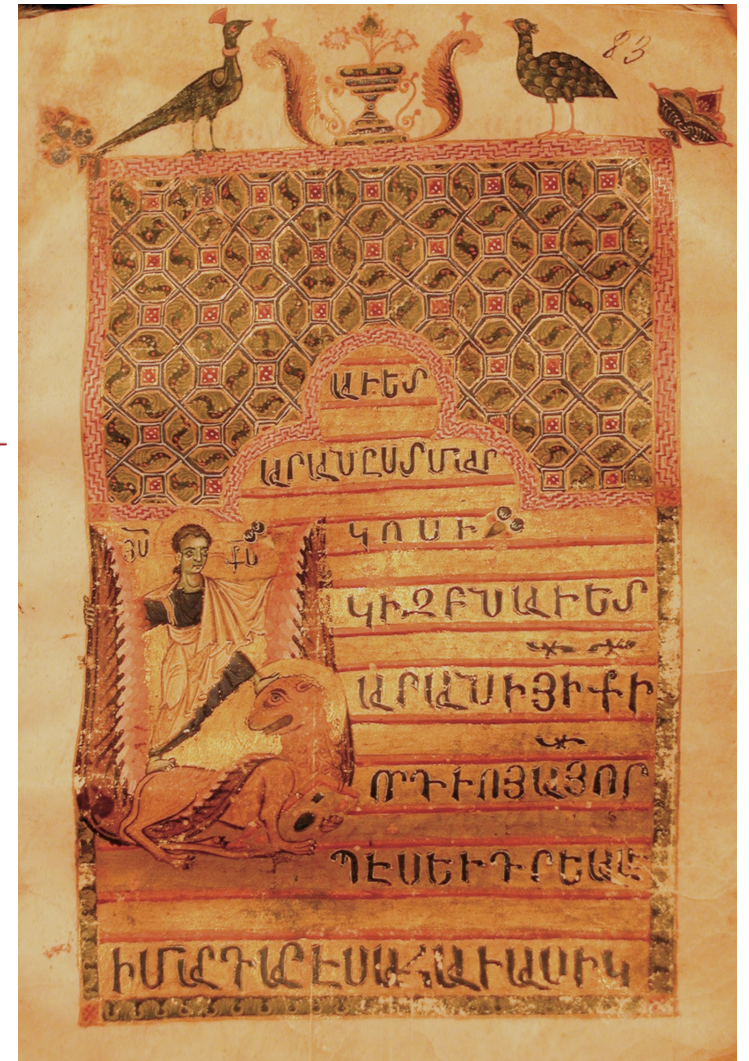 83
ԱՒԵՏ
ԱՐԱՆԸՍՏՄԱՐ
ԿՈՍԻ
ՅՍ ՔՍ
ԿԻԶԲՆԱՒԵՏ
ԱՐԱՆԻՅԻՔԻ
ՈՐԴՒՈՅԱՅՈՐ
ՊԷՍԵՒԳՐԵԱԼԷ
ԻՄԱՐԳԱՐԷՍԱՀԱՒԱՍԻԿ